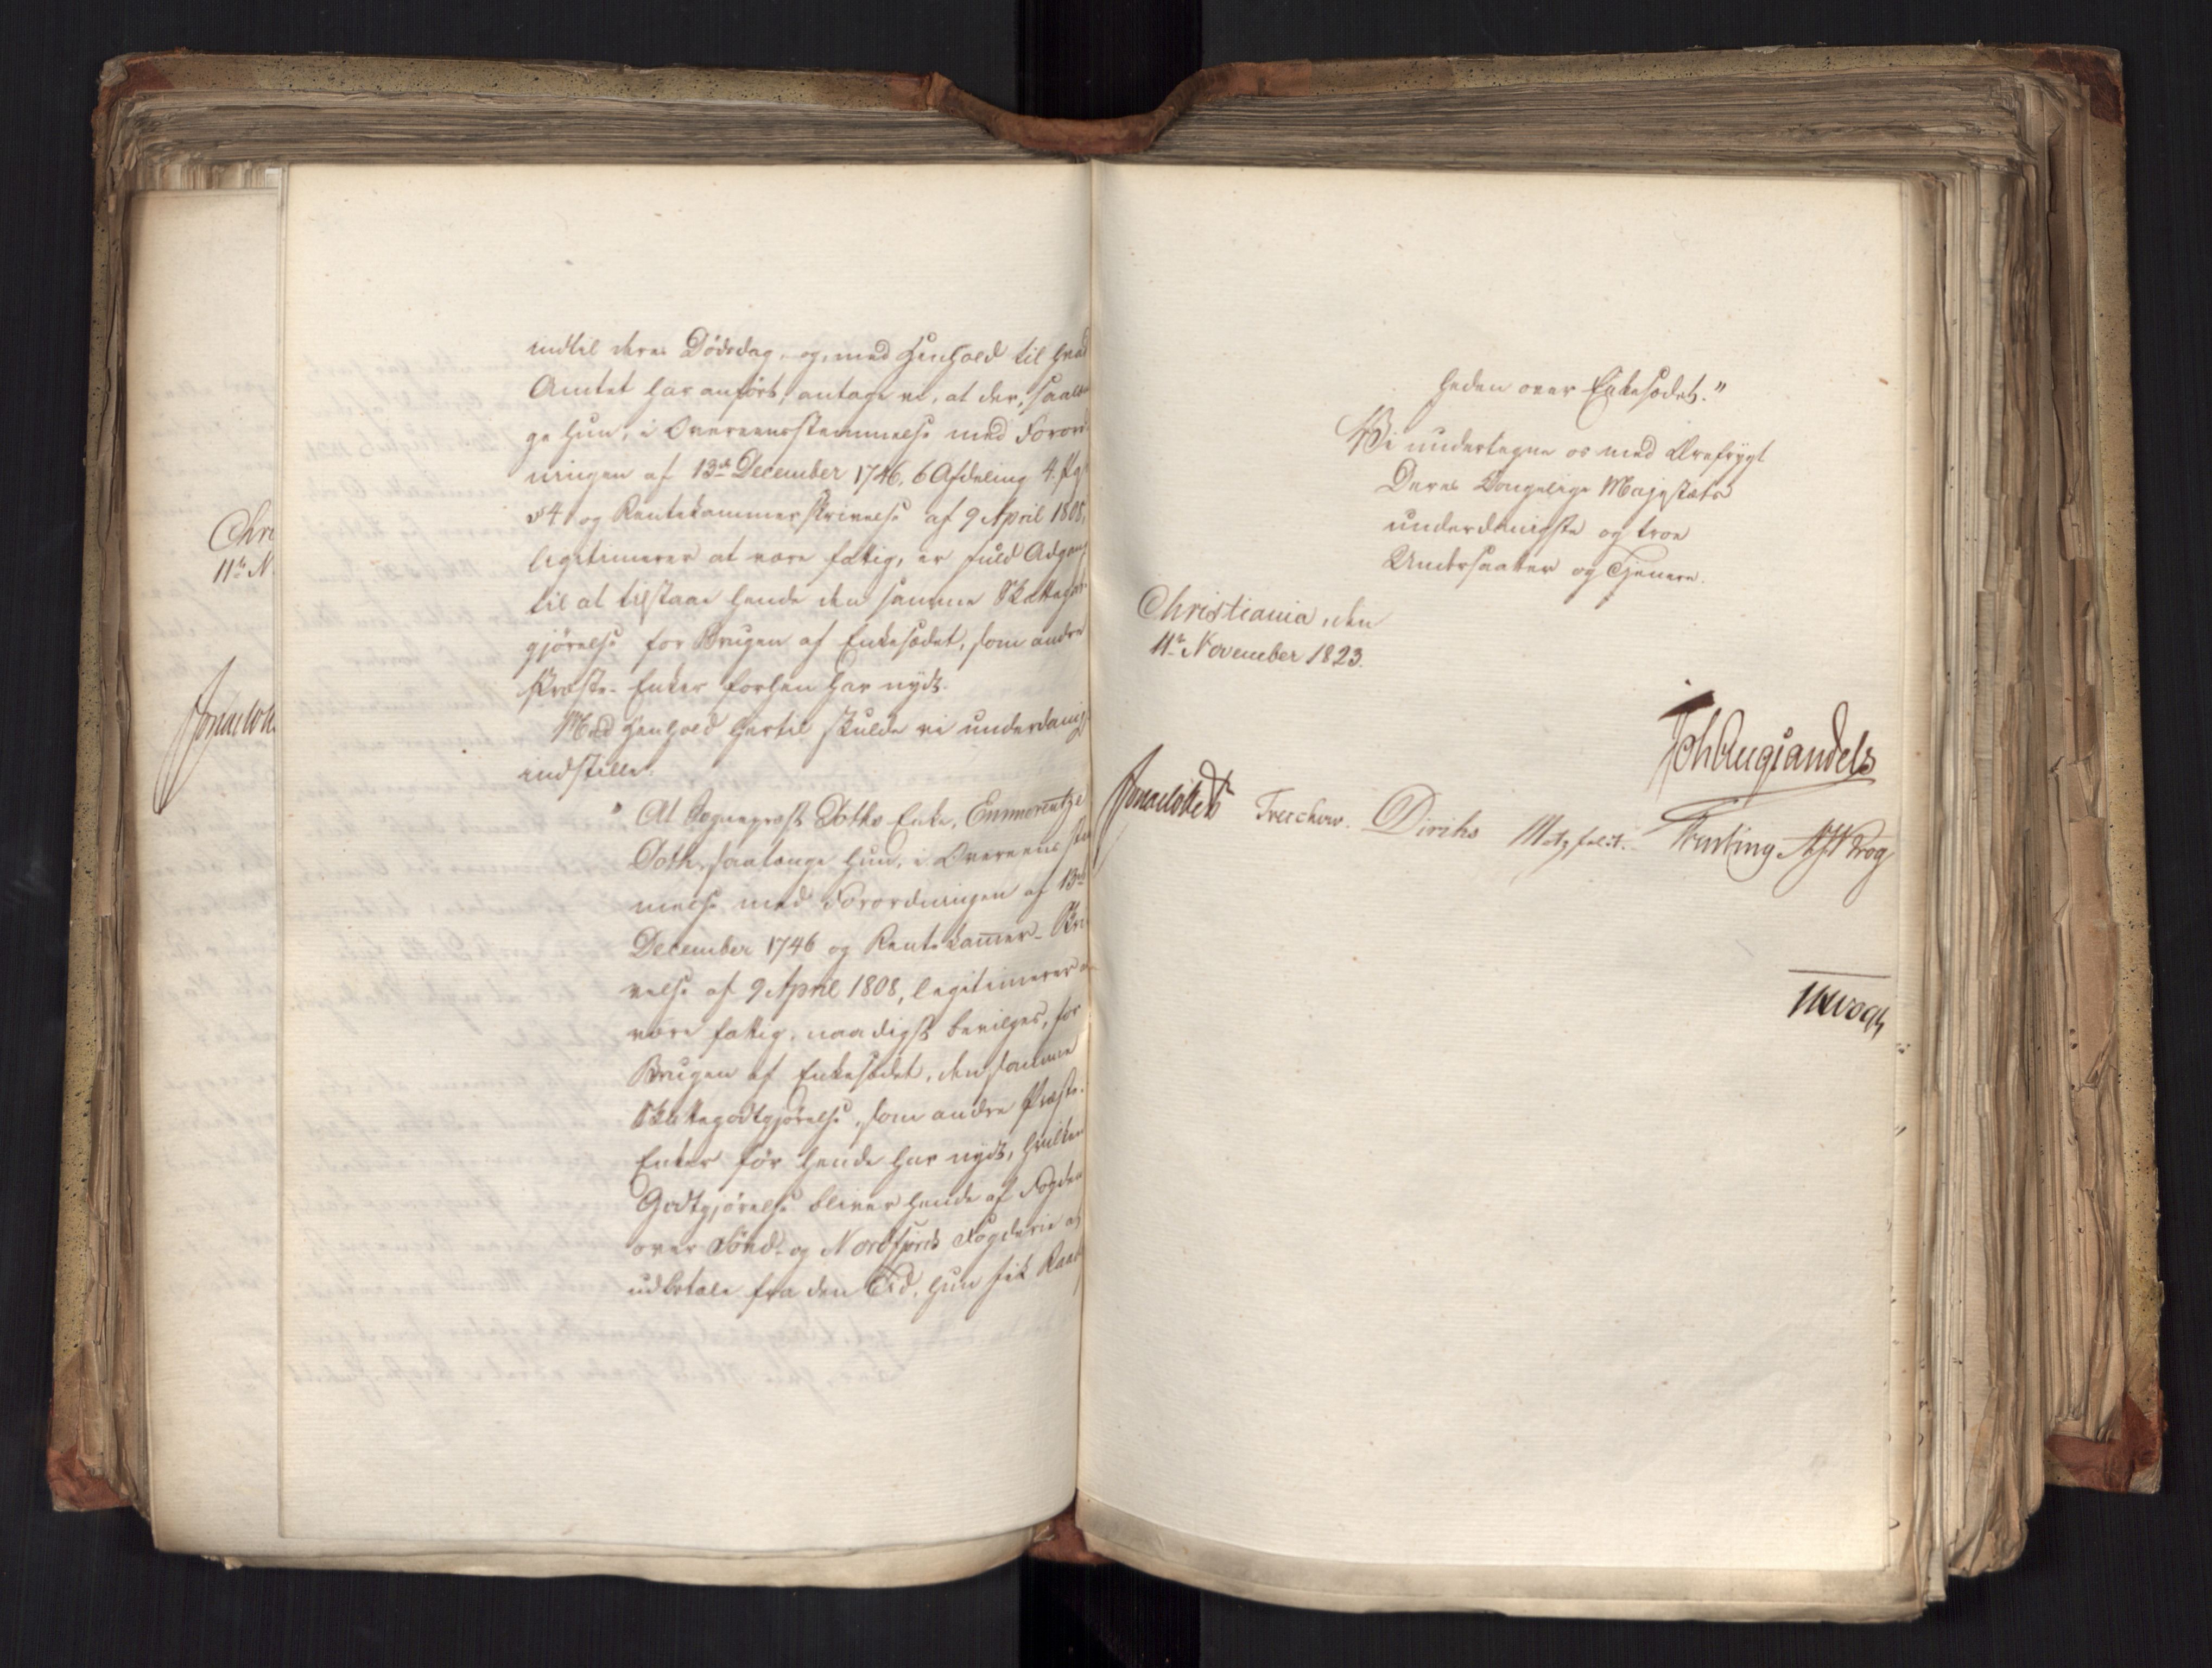 Chri
11te N
Jonas Coll
indtil deres Dødsdag, og, med Henhold til hvad
Amtet har anført, antage vi, at der, saalæn-
ge hun, i Overeensstemmelse med Forord-
ningen af 13de December 1746, 6 Afdeling 4.
og Rentekammerskrivelse af 9 April 1808,
legitimerer at være fattig, er fuld Adgang
til at tilstaae hende den samme Skattegodt-
gjørelse for Brugen af Enkesædet, som andre
Præste-Enker forhen har nydt.
Med Henhold hertil skulde vi underdanigst
indstille:
" At Sognepræst Toths Enke, Emmerentze
Toth, saalænge hun, i Overeensstem-
melse med Forordningen af 13de
December 1746 og Rentekam̄er-Skri-
velse af 9 April 1808, legitimerer at
være fattig, naadigst bevilges, for
Brugen af Enkesædet, den samme
Skattegodtgjørelse, som andre Præste-
Enker før hende har nydt, hvilken
Godtgjørelse bliver hende af Fogden
over Sønd- og Nordfjords Fogderie at
udbetale fra den Tid, hun fik Raadig-
heden over Enkesædet."
Vi undertegne os med Ærefrygt
Deres Kongelige Majestæts
underdanigste og troe
Undersaatter og Tjenere.
Christiania, den
11te November 1823.
Joh Aug Sandels
Jonas Collett Treschow. Diriks Motzfeldt. Fasting AH Krog
Vogt